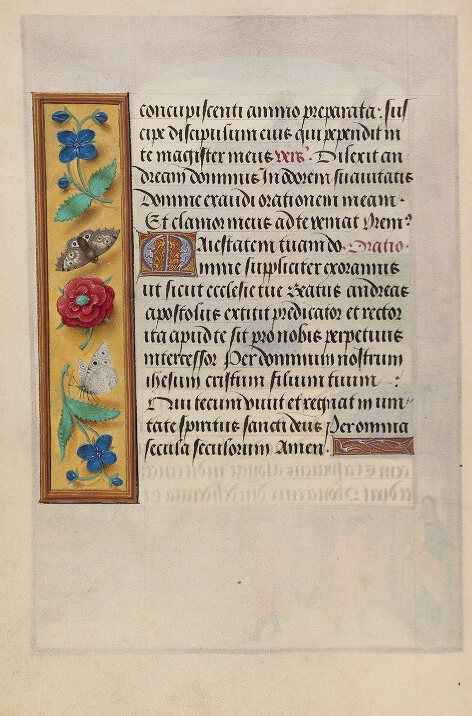 concupiscenti animo preparata: sus
cipe discipulum eius qui pependit in
te magister meus vers. Dilexit an
dream dominus In odorem suauitatis
Domine exaudi orationem meam.
Et clamor meus ad te veniat Orem?
Maiestatem tuam do Oratio.
mine suppliciter exoramus
ut sicut ecclesie tue Beatus andreas
apostolus extitit predicator et rector
ita apud te sit pro nobis perpetuus
intercessor Per dominum nostrum
ihesum cristum filium tuum :
Qui tecum viuit et regnat in uni
tate spiritus sancti deus Per omnia
secula seculorum Amen.